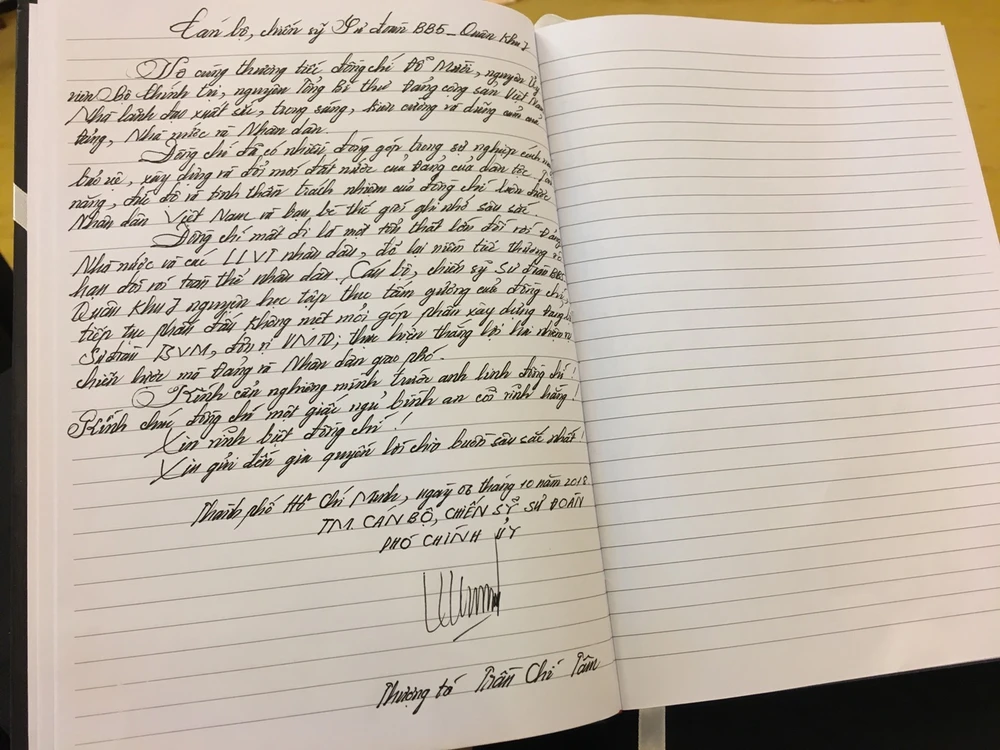 Cán bộ, chiến sỹ Sư đoàn BB5 - Quân Khu 7
Vô cùng thương tiếc đồng chí Đỗ Mười, nguyên Ủy
viên Bộ Chính trị, nguyên Tổng Bí thư Đảng cộng sản Việt Nam
Nhà lãnh đạo xuất sắc, trong sáng, kiên cường và dũng cảm của
Đảng, Nhà nước và Nhân dân.
Đồng chí đã có nhiều đóng góp trong sự nghiệp cách
bảo vệ, xây dựng và đổi mới đất nước của Đảng của dân tộc. Tài
năng, đức độ và tinh thần trách nhiệm của đồng chí luôn được
Nhân dân Việt Nam và bạn bè thế giới ghi nhớ sâu sắc.
Đồng chí mất đi là một tổn thất lớn đối với Đảng
Nhà nước và các LLVT nhân dân, để lại niềm tiếc thương vô
hạn đối với toàn thể nhân dân. Cán bộ, chiến sỹ Sư đoàn BB5
Quân Khu 7 nguyện học tập theo tấm gương của đồng chí,
tiếp tục phấn đấu không mệt mỏi góp phần xây dựng Đảng bộ
Sư đoàn TSVM, đơn vị VMTD; thực hiện thắng lợi hai nhiệm vụ
chiến lược mà Đảng và Nhân dân giao phó.
Kính cẩn nghiêng mình trước anh linh đồng chí!
Kính chúc đồng chí một giấc ngủ bình an cõi vĩnh hằng!
Xin vĩnh biệt đồng chí!
Xin gửi đến gia quyến lời chia buồn sâu sắc nhất!
Thành phố Hồ Chí Minh, ngày 06 tháng 10 năm 2018
TM. CÁN BỘ, CHIẾN SỸ SƯ ĐOÀN
PHÓ CHÍNH ỦY
Thượng tá Trần Chí Tâm